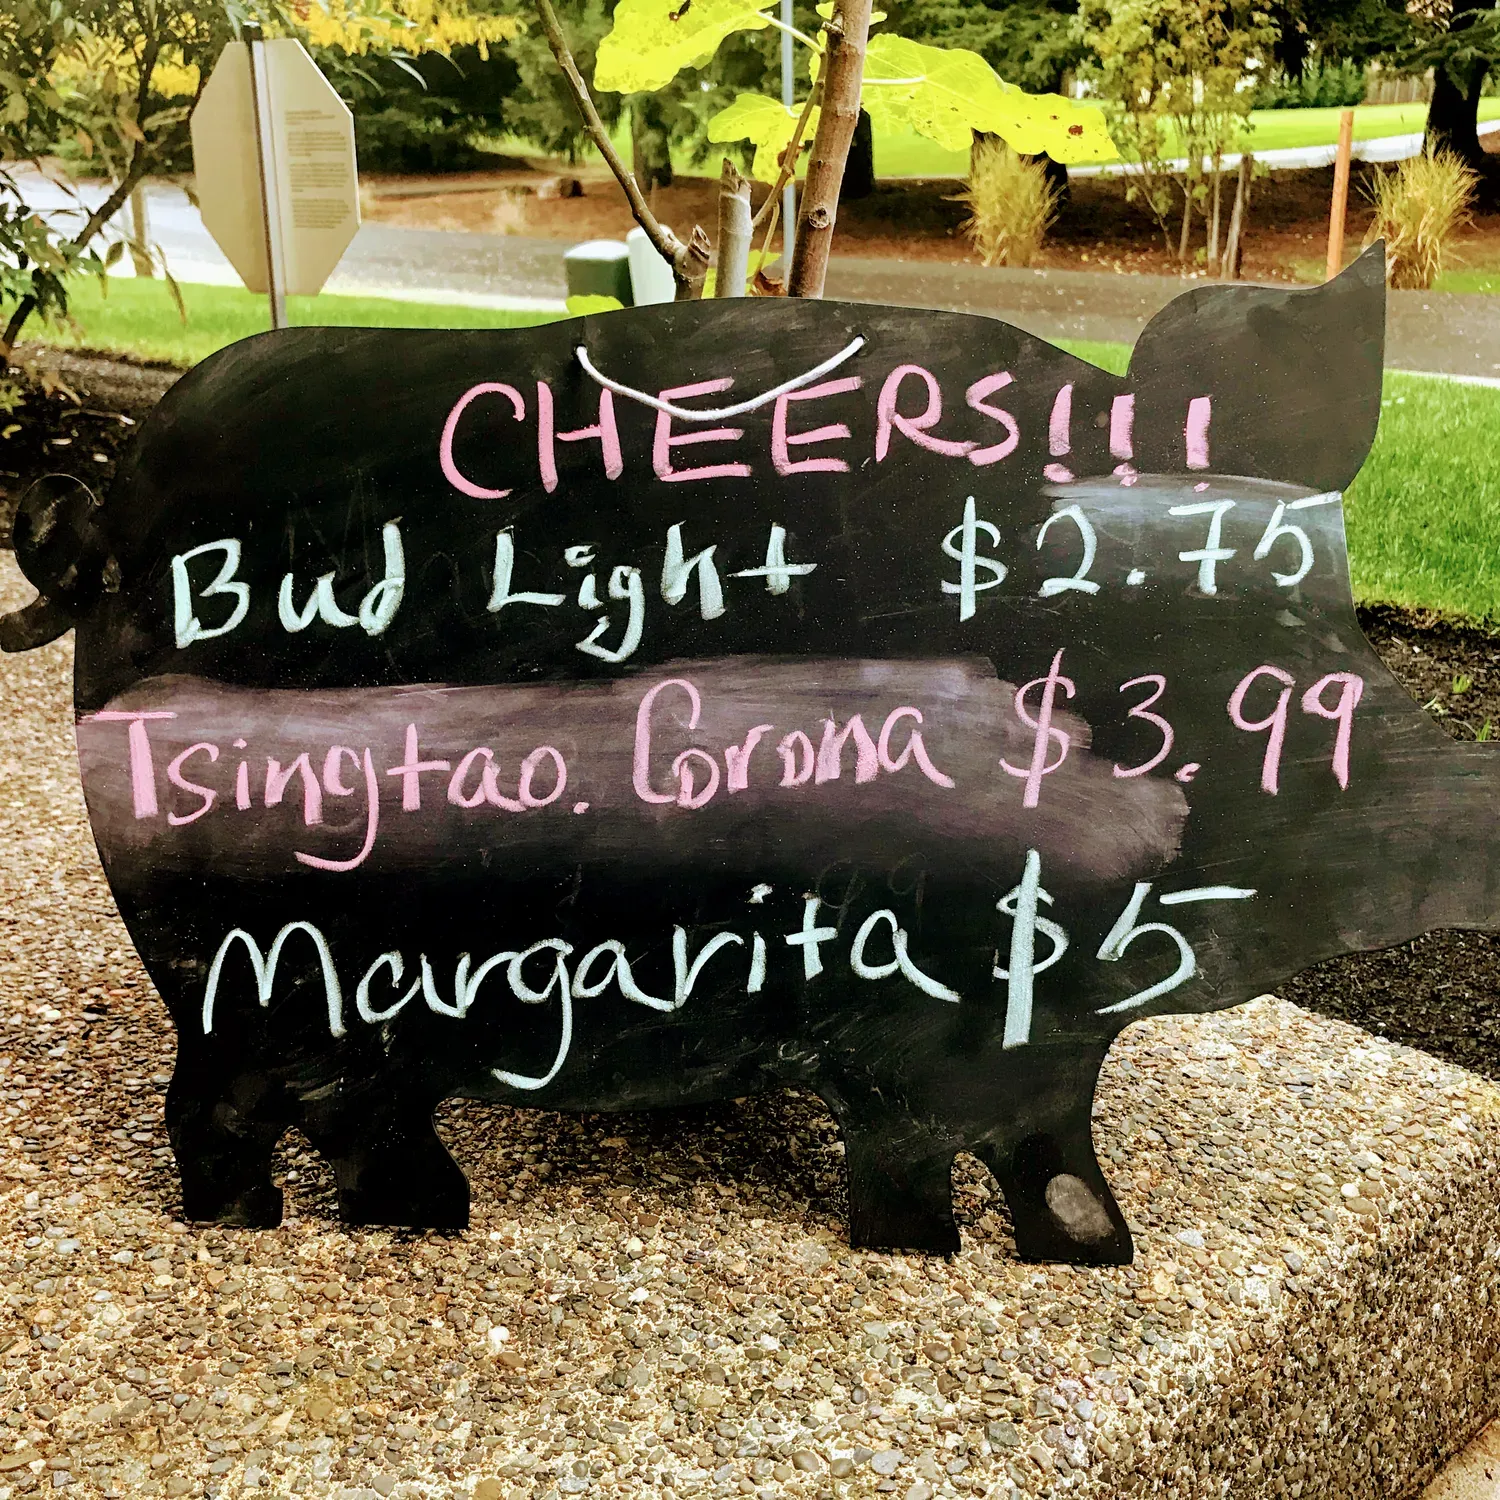 CHEERS!!!
Bud Light $2.75
Tsingtao. Corona $3.99
Margarita $5